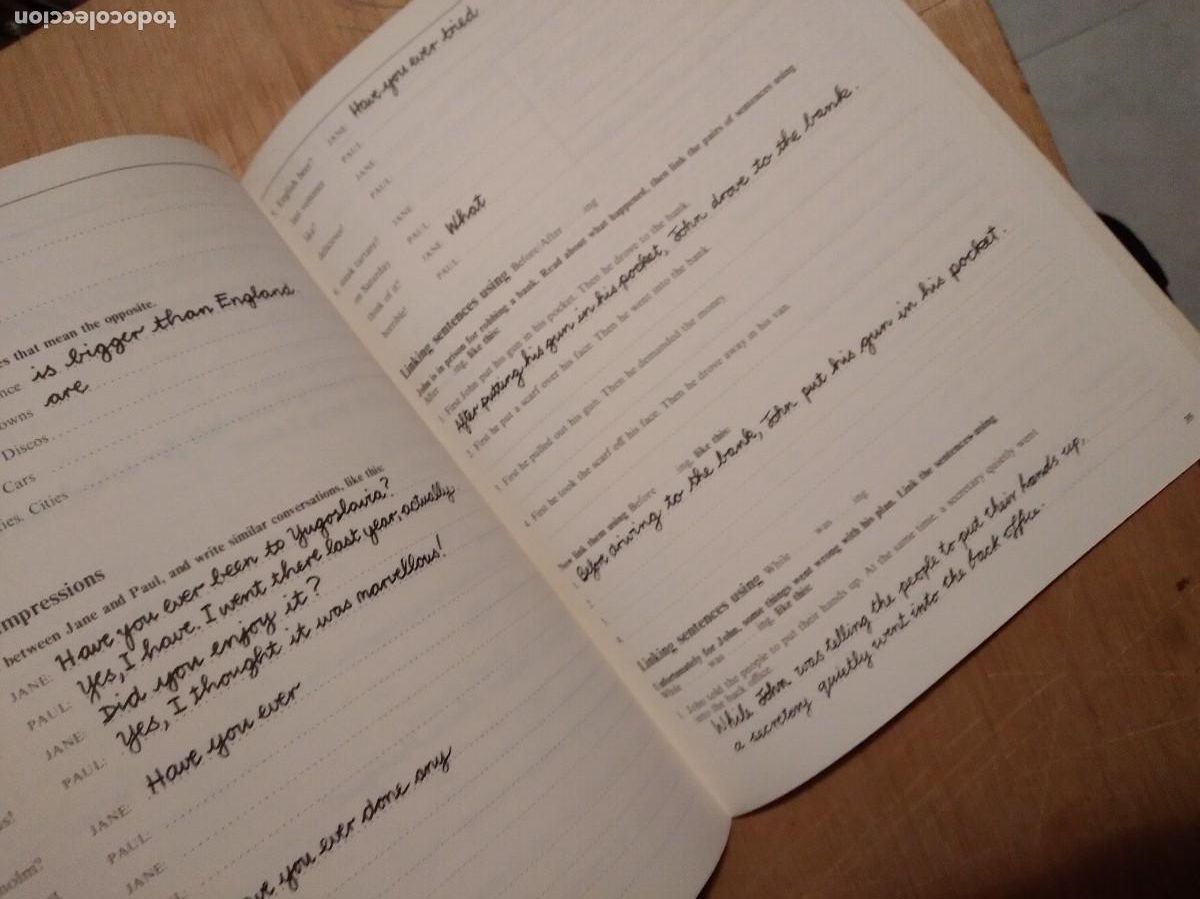 todocoleccion
es that mean the opposite.
nce is bigger than England
owns are
Discos
Cars
ties. Cities
mpressions
between Jane and Paul, and write similar conversations, like this:
JANE: Have you ever been to Yugoslavia?
PAUL: Yes, I have. I went there last year, actually.
JANE: Did you enjoy it?
PAUL: Yes, I thought it was marvellous!
JANE: Have you ever
PAUL:
JANE:
ve you ever done any
English beer?
JANE Have you ever tried
PAUL
JANE
PAUL
steak tartare?
JANE
on Saturday
PAUL
think of it?
JANE What
horrible!
PAUL
Linking sentences using Before/After ing
John is in prison for robbing a bank. Read about what happened, then link the pairs of sentences using
After ing, like this:
1. First John put his gun in his pocket. Then he drove to the bank.
After putting his gun in his pocket, John drove to the bank.
2. First he put a scarf over his face. Then he went into the bank.
3. First he pulled out his gun. Then he demanded the money.
4. First he took the scarf off his face. Then he drove away in his van.
Now link them using Before ing, like this:
1. Before driving to the bank, John put his gun in his pocket.
2.
3.
4.
Linking sentences using While was ing
Unfortunately for John, some things went wrong with his plan. Link the sentences using
While was ing, like this:
1. John told the people to put their hands up. At the same time, a secretary quietly went
into the back office.
While John was telling the people to put their hands up,
a secretary quietly went into the back office.